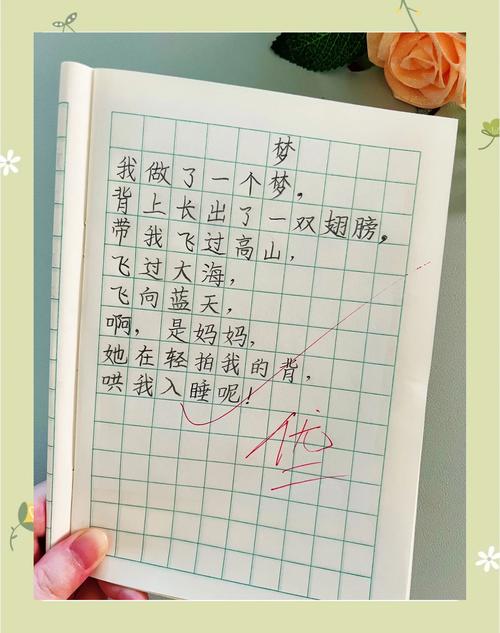 梦
我做了一个梦，
背上长出了一双翅膀，
带我飞过高山，
飞过大海，
飞向蓝天，
啊，是妈妈，
她在轻拍我的背，
哄我入睡呢！
优